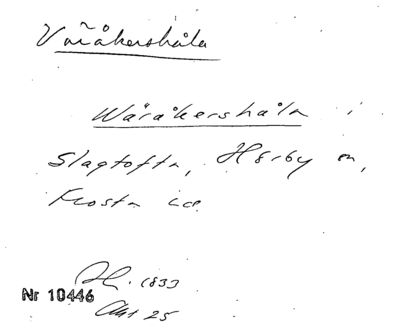 Väråkershåla
Wäråkershåla i
Slagtofta, Hörby sn,
Frosta hd
1833
Nr 10446
Akt 25